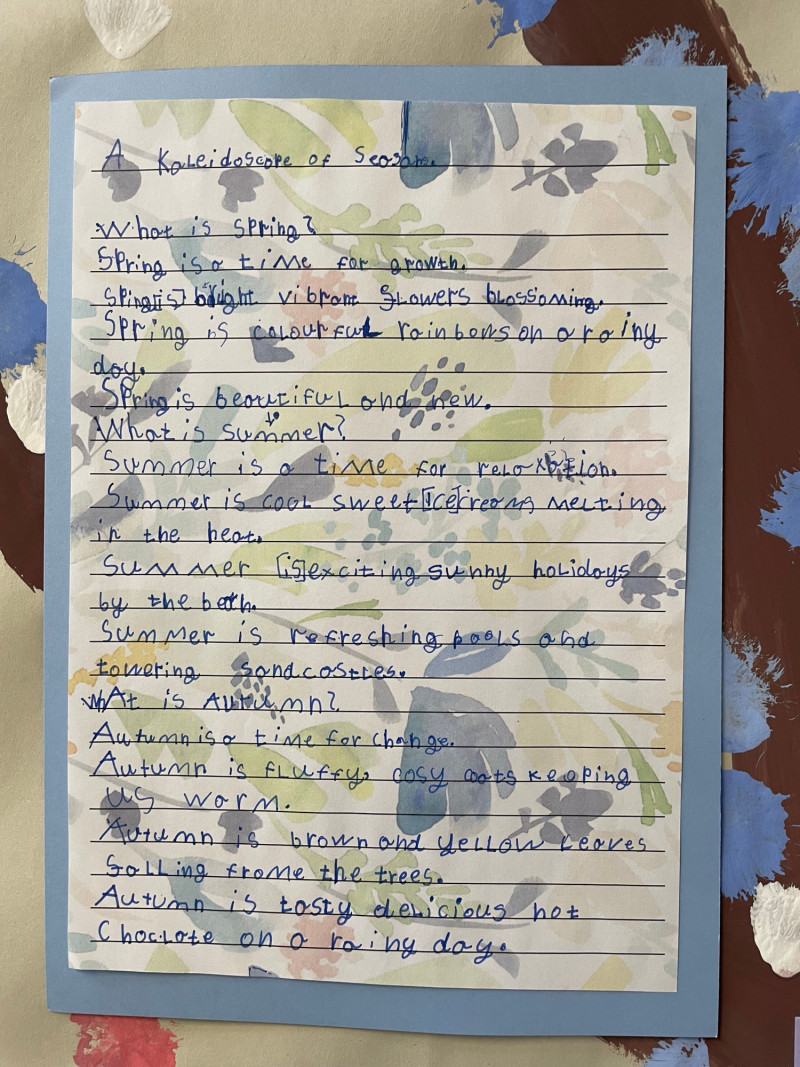 A Kaleidoscope of Seosam.
What is spring?
Spring is a time for growth.
Spingis] bright vibrant flowers blossoming.
Spring is colourful rainbows on a rainy
day.
Spring is beautiful and new.
What is summer?
Summer is a time for relaxation.
Summer is cool sweet [ice]creams melting
in the heat.
Summer [is] exciting sunny holidays
by the beth.
Summer is refreshing pools and
towering sandcastles.
whAt is Autumn?
Autumn is a time for change.
Autumn is fluffy, cosy coats keeping
us warm.
Autumn is brown and yellow leaves
falling frome the trees.
Autumn is tasty delicious hot
Choclate on a rainy day.